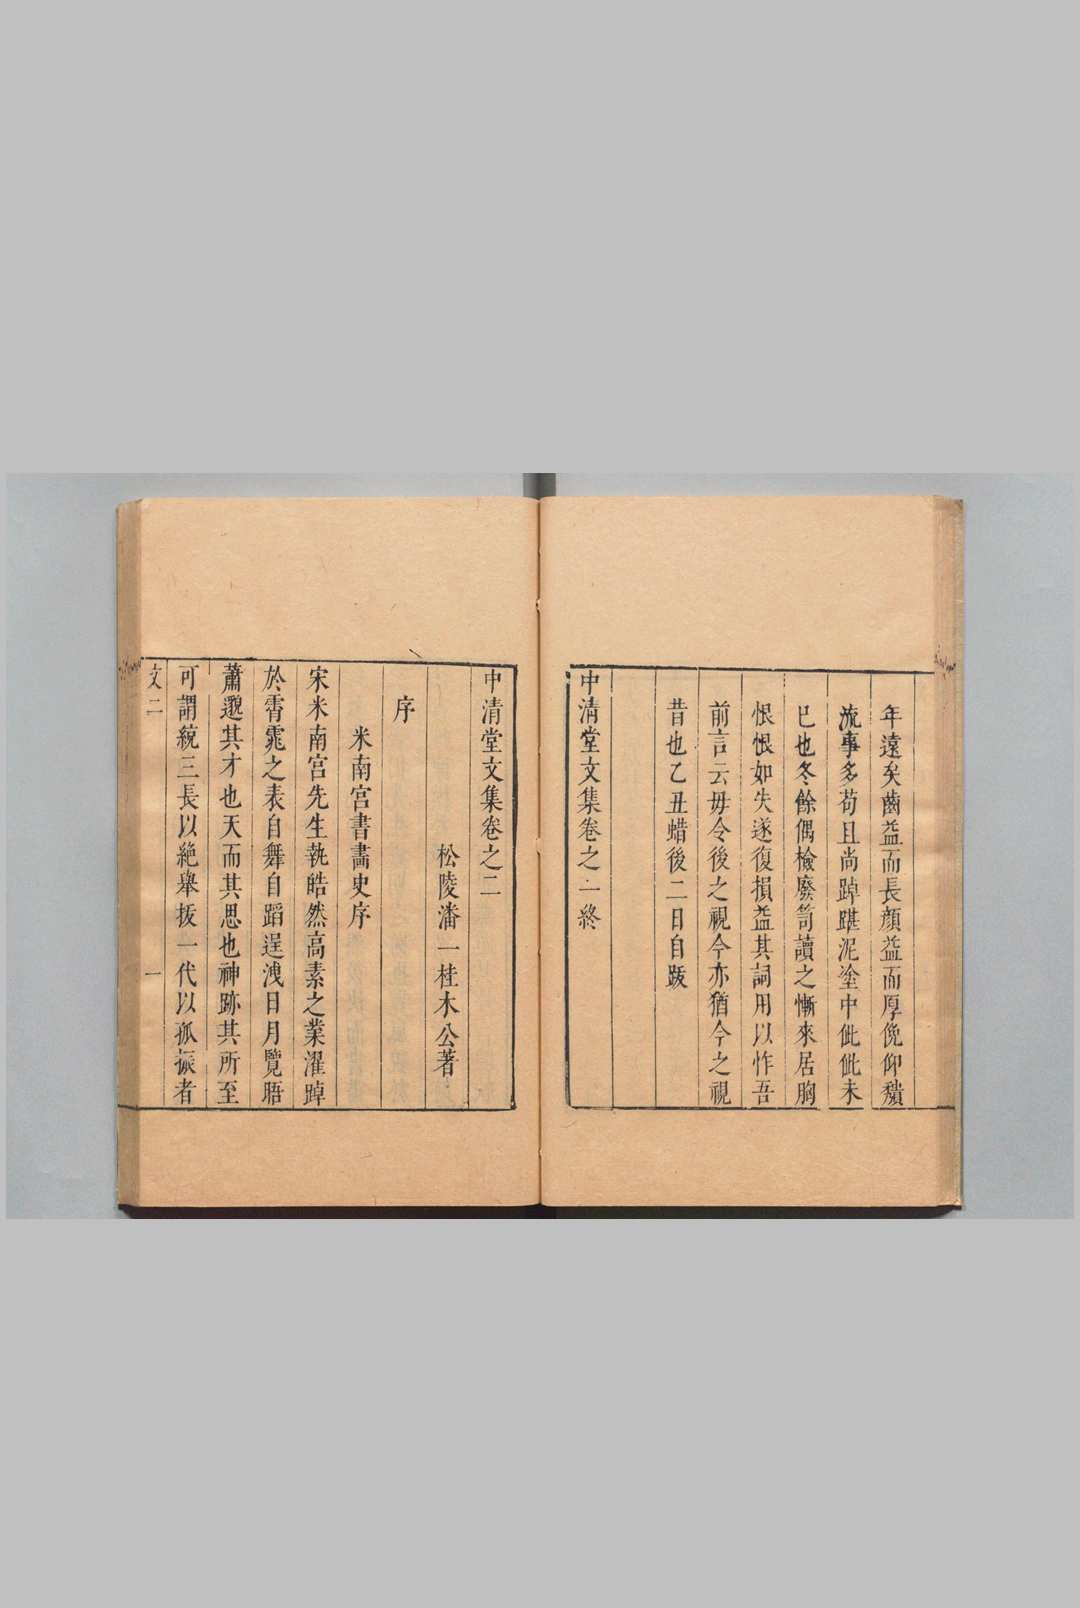 年遠矣齒益而長顏益而厚俛仰積
流事多苟且尚踔踸泥塗中佌佌未
已也冬餘偶檢廢笥讀之慚來居胸
恨恨如失遂復損益其詞用以怍吾
前言云毋令後之視今亦猶今之視
昔也乙丑蜡後二日自跋
中清堂文集卷之一終
中清堂文集卷之二
松陵潘一桂木公著
序
米南宮書畫史序
宋米南宮先生執皓然高素之業濯踔
於霄霓之表自舞自蹈逞洩日月覽晤
蕭邈其才也天而其思也神跡其所至
可謂統三長以絶舉拔一代以孤振者
文二 一